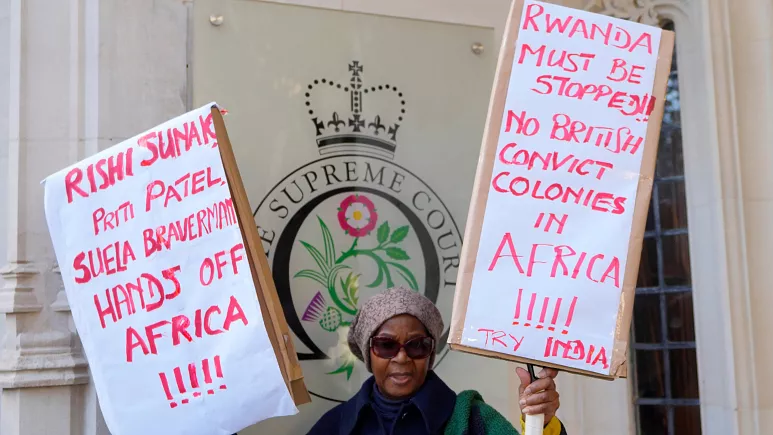 RISHI SUNAK
PRITI PATEL,
SUELA BRAVERMAN
HANDS OFF
AFRICA
!!!!
THE SUPREME COURT
RWANDA
MUST BE
STOPPED!!!
NO BRITISH
CONVICT
COLONIES
IN
AFRICA
!!!!!
TRY INDIA